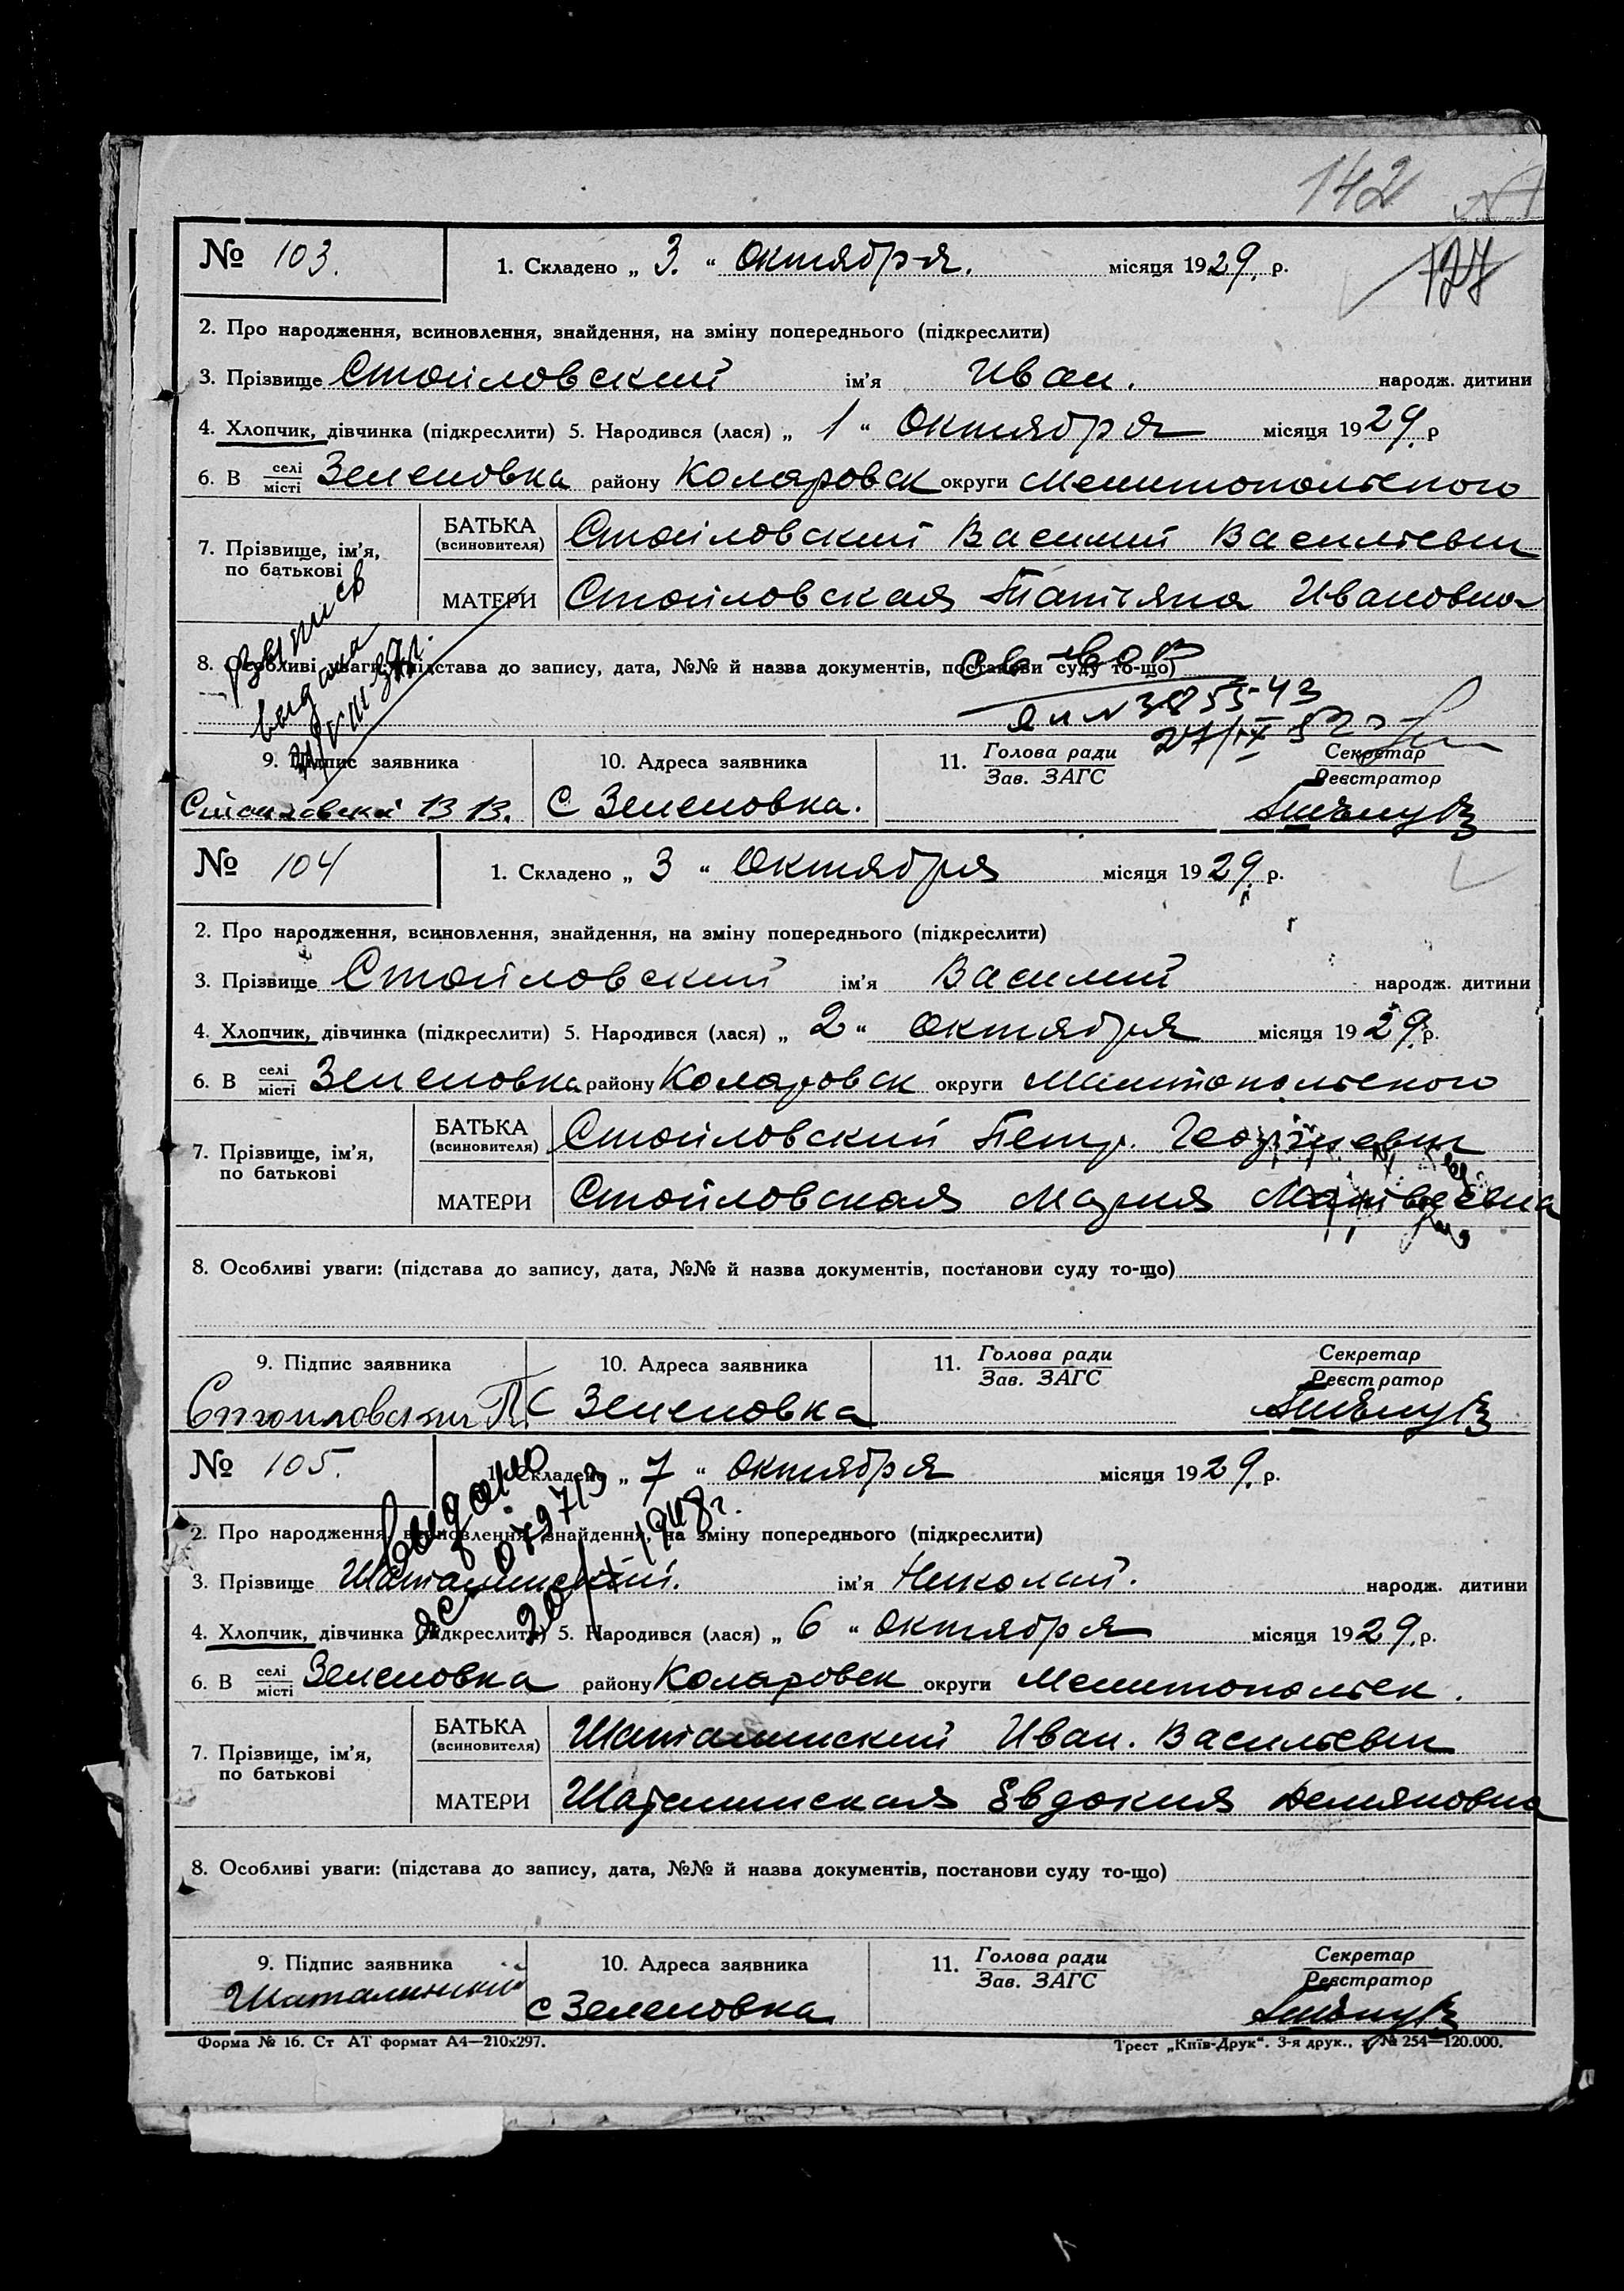 142
127
№ 103. 1. Складено „ 3. “ Октября. місяця 1929. р.
2. Про народження, всиновлення, знайдення, на зміну попереднього (підкреслити)
3. Прізвище Стоиловский ім'я Иван. народж. дитини
4. Хлопчик, дівчинка (підкреслити) 5. Народився (лася) „ 1 “ Октября місяця 1929. р
6. В селі/місті Зеленовка району Коляровск округи Мелитопольского
7. Прізвище, ім'я, по батькові БАТЬКА (всиновителя) Стоиловский Василий Васильевич
МАТЕРИ Стоиловская Татьяна Ивановна
8. Особливі уваги: (підстава до запису, дата, №№ й назва документів, постанови суду то-що)
выдана
27/IX
9. Підпис заявника 10. Адреса заявника 11. Голова ради Секретар
Зав. ЗАГС Реєстратор
Стоиловский В В. с Зеленовка.
№ 104 1. Складено „ 3 “ Октября місяця 1929. р.
2. Про народження, всиновлення, знайдення, на зміну попереднього (підкреслити)
3. Прізвище Стоиловский ім'я Василий народж. дитини
4. Хлопчик, дівчинка (підкреслити) 5. Народився (лася) „ 2 “ Октября місяця 1929. р.
6. В селі/місті Зеленовка району Коляровск округи Мелитопольского
7. Прізвище, ім'я, по батькові БАТЬКА (всиновителя) Стоиловский Петр. Георгиевич
МАТЕРИ Стоиловская Мария Матвеевна
8. Особливі уваги: (підстава до запису, дата, №№ й назва документів, постанови суду то-що)
9. Підпис заявника 10. Адреса заявника 11. Голова ради Секретар
Зав. ЗАГС Реєстратор
Стоиловский П. с Зеленовка
№ 105. 1. Складено „ 7 “ Октября місяця 1929. р.
выдано
079713
1948 г.
2. Про народження, всиновлення, знайдення, на зміну попереднього (підкреслити)
3. Прізвище Шаталинский. ім'я Николай. народж. дитини
4. Хлопчик, дівчинка (підкреслити) 5. Народився (лася) „ 6 “ Октября місяця 1929. р.
6. В селі/місті Зеленовка району Коляровск округи Мелитопольск.
7. Прізвище, ім'я, по батькові БАТЬКА (всиновителя) Шаталинский Иван. Васильевич
МАТЕРИ Шаталинская Евдокия Демяновна
8. Особливі уваги: (підстава до запису, дата, №№ й назва документів, постанови суду то-що)
9. Підпис заявника 10. Адреса заявника 11. Голова ради Секретар
Зав. ЗАГС Реєстратор
Шаталинский с Зеленовка
Форма № 16. Ст АТ формат А4—210х297. Трест „Київ-Друк“. 3-я друк., з. № 254—120.000.